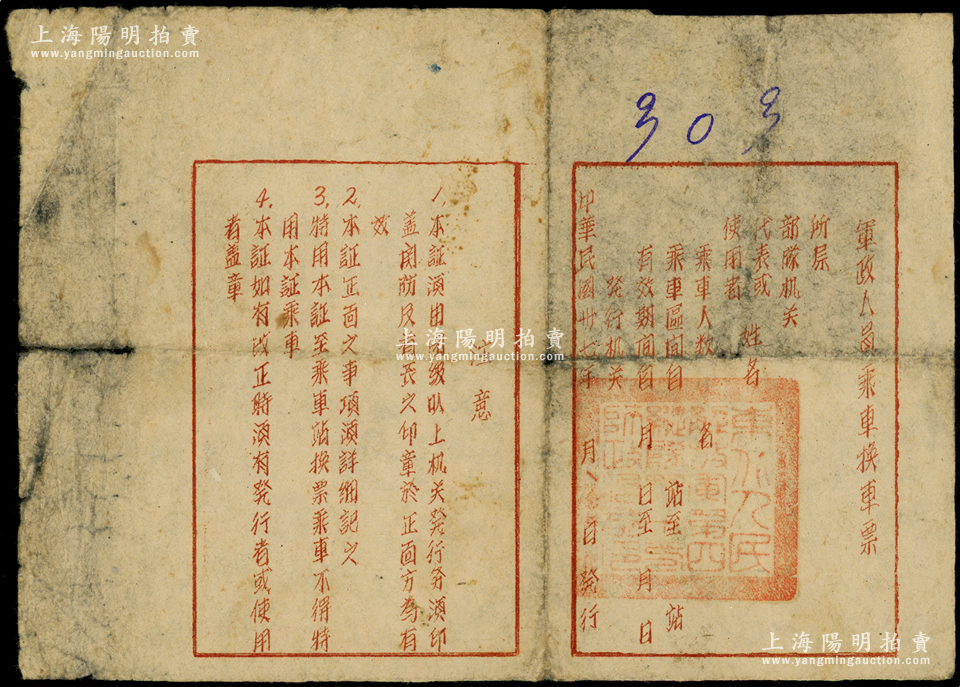 上海陽明拍賣
www.yangmingauction.com
303
軍政人員乘車換車票
所屬
部隊机关
代表或
使用者 姓名
乘車人数 名
乘車區间自 站至 站
有效期间自 月 日至 月 日
發行机关
中華民國卅七年 月 日發行
注意
1、本証須由 级以上机关發行并須印
盖関防及 長之印章於正面方為有
效
2、本証正面之事項須詳细記之
3、持用本証至乘車站换票乘車不得持
用本証乘車
4、本証如有改正時須有發行者或使用
者盖章
東北人民
上海陽明拍賣
www.yangmingauction.com